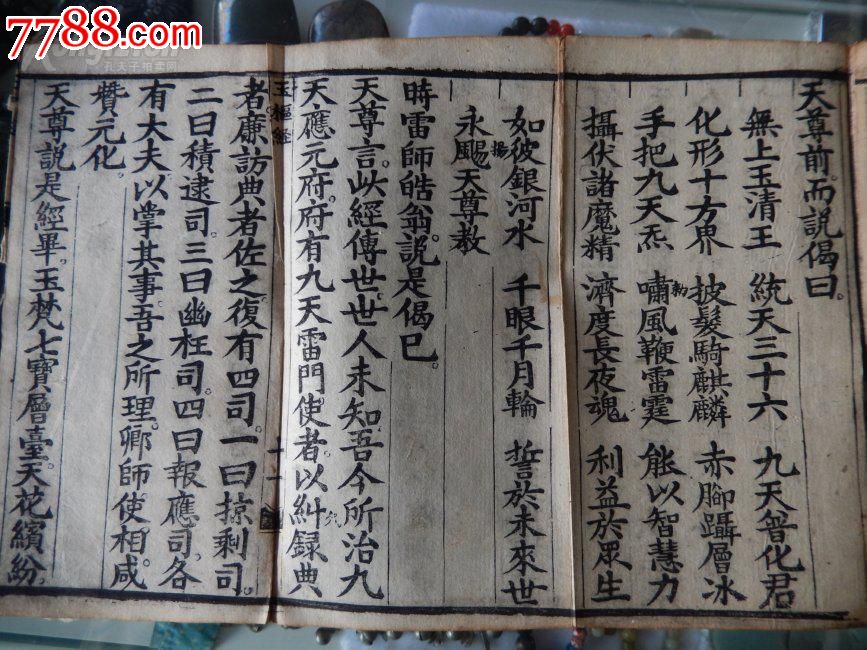 7788.com
孔夫子拍卖网
天尊前。而説偈曰。
無上玉清王 統天三十六 九天普化君
化形十方界 披髮騎麒麟 赤腳躡層冰
手把九天炁 嘯風鞭雷霆 能以智慧力
勑
攝伏諸魔精 濟度長夜魂 利益於眾生
如彼銀河水 千眼千月輪 誓於未來世
永颺天尊教
揚
時雷師皓翁。説是偈已。
天尊言。此經傳世。世人未知。吾今所治九
天應元府。府有九天雷門使者。以糾錄典
者。廉訪典者佐之。復有四司。一曰掠剩司。
二曰積逮司。三曰幽枉司。四曰報應司。各
有大夫。以掌其事。吾之所理。卿師使相。咸
贊元化。
天尊説是經畢。玉梵七寶層臺。天花繽紛。
玉樞經
十一